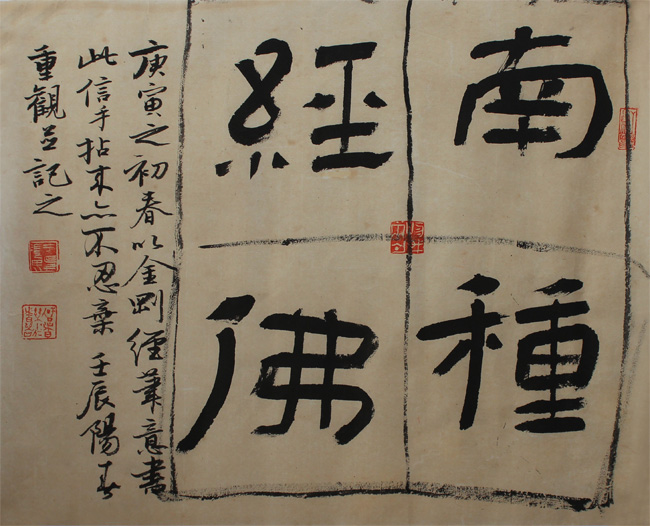 南種
經佛
庚寅之初春以金剛經筆意書
此信手拈來亦不忍棄 壬辰陽春
重觀並記之